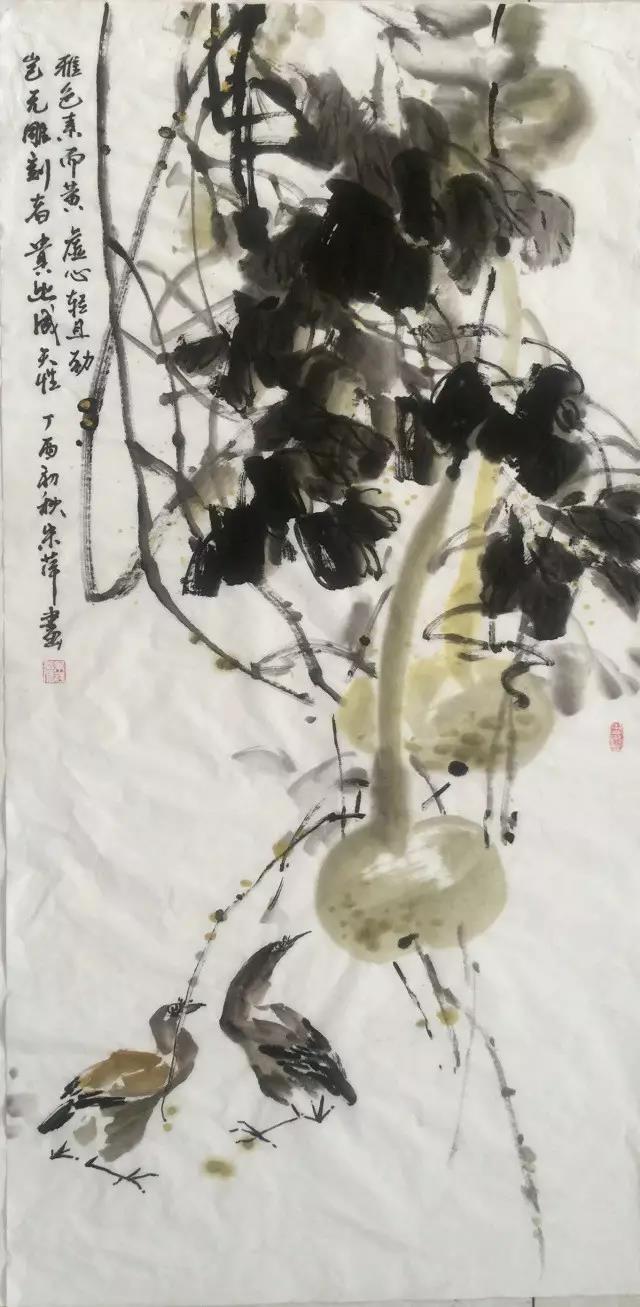 雅色素而黄 虚心轻且劲
岂无雕刻者 贵此成天性 丁酉初秋朱萍畫